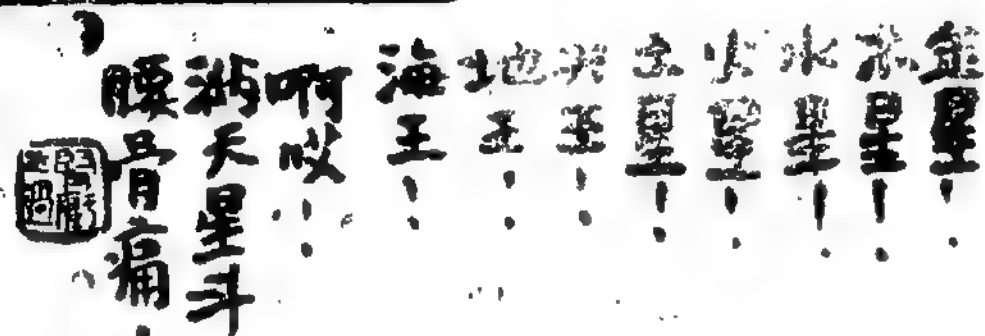 金星!
木星!
水星!
火星!
土星!
天王!
地王!
海王!
啊哎!
滿天星斗
腰骨痛!